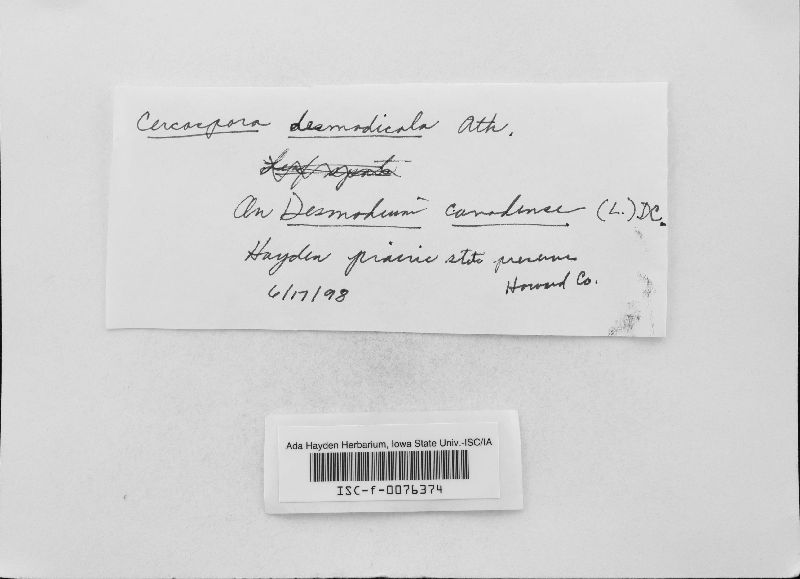 Cercospora desmodicola Ath.
Leaf spots
On Desmodium canadense (L.) DC.
Hayden prairie state preserve
Howard Co.
6/17/98
Ada Hayden Herbarium, Iowa State Univ.-ISC/IA
ISC-f-0076374